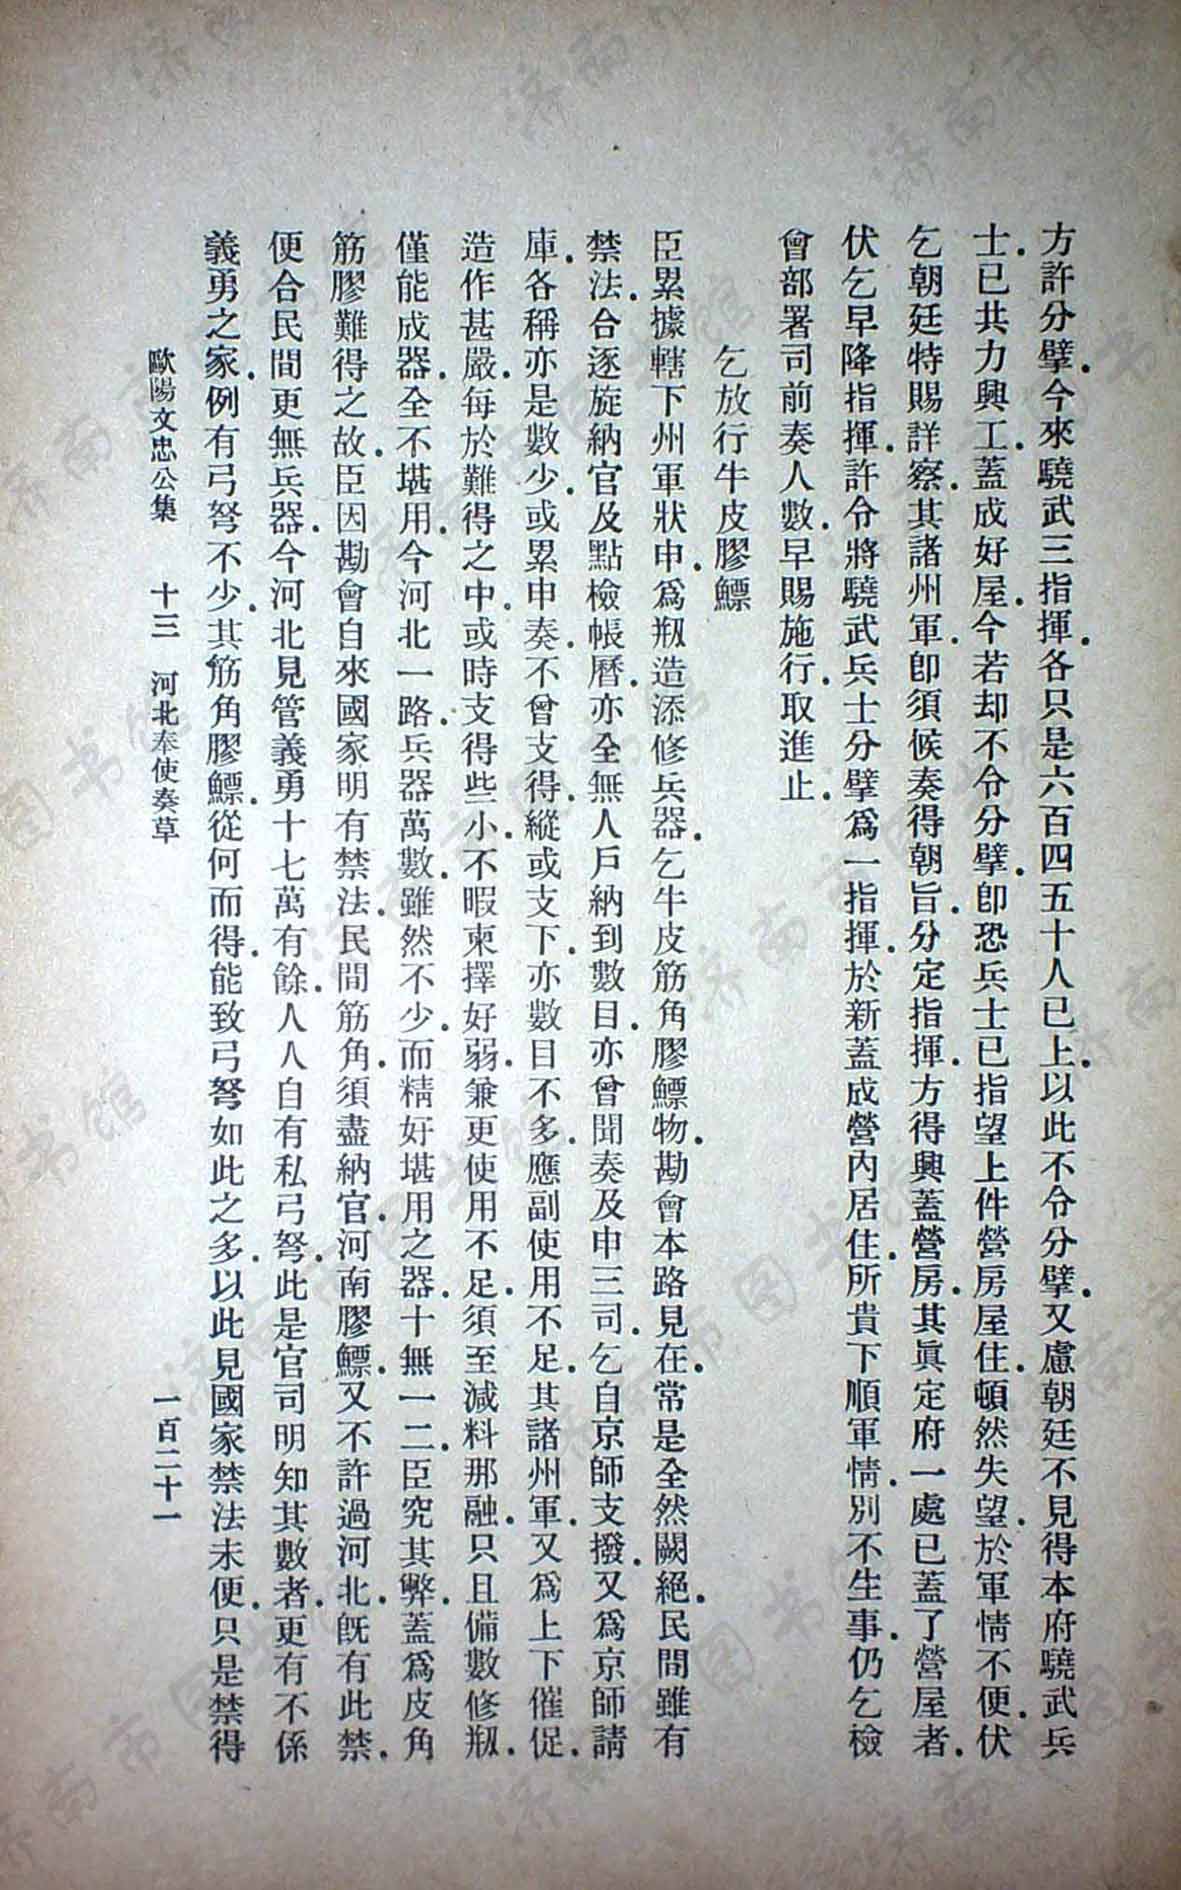 方許分擘.今來驍武三指揮.各只是六百四五十人已上.以此不令分擘.又慮朝廷不見得本府驍武兵
士.已共力興工.蓋成好屋.今若却不令分擘.卽恐兵士已指望上件營房屋住.頓然失望.於軍情不便.伏
乞朝廷特賜詳察.其諸州軍.卽須候奏得朝旨.分定指揮.方得興蓋營房.其眞定府一處已蓋了營屋者.
伏乞早降指揮.許令將驍武兵士分擘爲一指揮.於新蓋成營內居住.所貴下順軍情.別不生事.仍乞檢
會部署司前奏人數.早賜施行.取進止.
乞放行牛皮膠鰾
臣累據轄下州軍狀申.爲剏造添修兵器.乞牛皮筋角膠鰾物.勘會本路見在.常是全然闕絕.民間雖有
禁法.合逐旋納官.及點檢帳曆.亦全無人戶納到數目.亦曾聞奏及申三司.乞自京師支撥.又爲京師請
庫.各稱亦是數少.或累申奏.不曾支得.縱或支下.亦數目不多.應副使用不足.其諸州軍.又爲上下催促.
造作甚嚴.每於難得之中.或時支得些小.不暇柬擇好弱.兼更使用不足.須至減料那融.只且備數修剏.
僅能成器.全不堪用.今河北一路.兵器萬數.雖然不少.而精好堪用之器.十無一二.臣究其弊.蓋爲皮角
筋膠難得之故.臣因勘會自來國家明有禁法.民間筋角.須盡納官.河南膠鰾.又不許過河北.旣有此禁.
便合民間更無兵器.今河北見管義勇十七萬有餘.人人自有私弓弩.此是官司明知其數者.更有不係
義勇之家.例有弓弩不少.其筋角膠鰾.從何而得.能致弓弩如此之多.以此見國家禁法未便.只是禁得
歐陽文忠公集 十三 河北奉使奏草 一百二十一
济南市图书馆